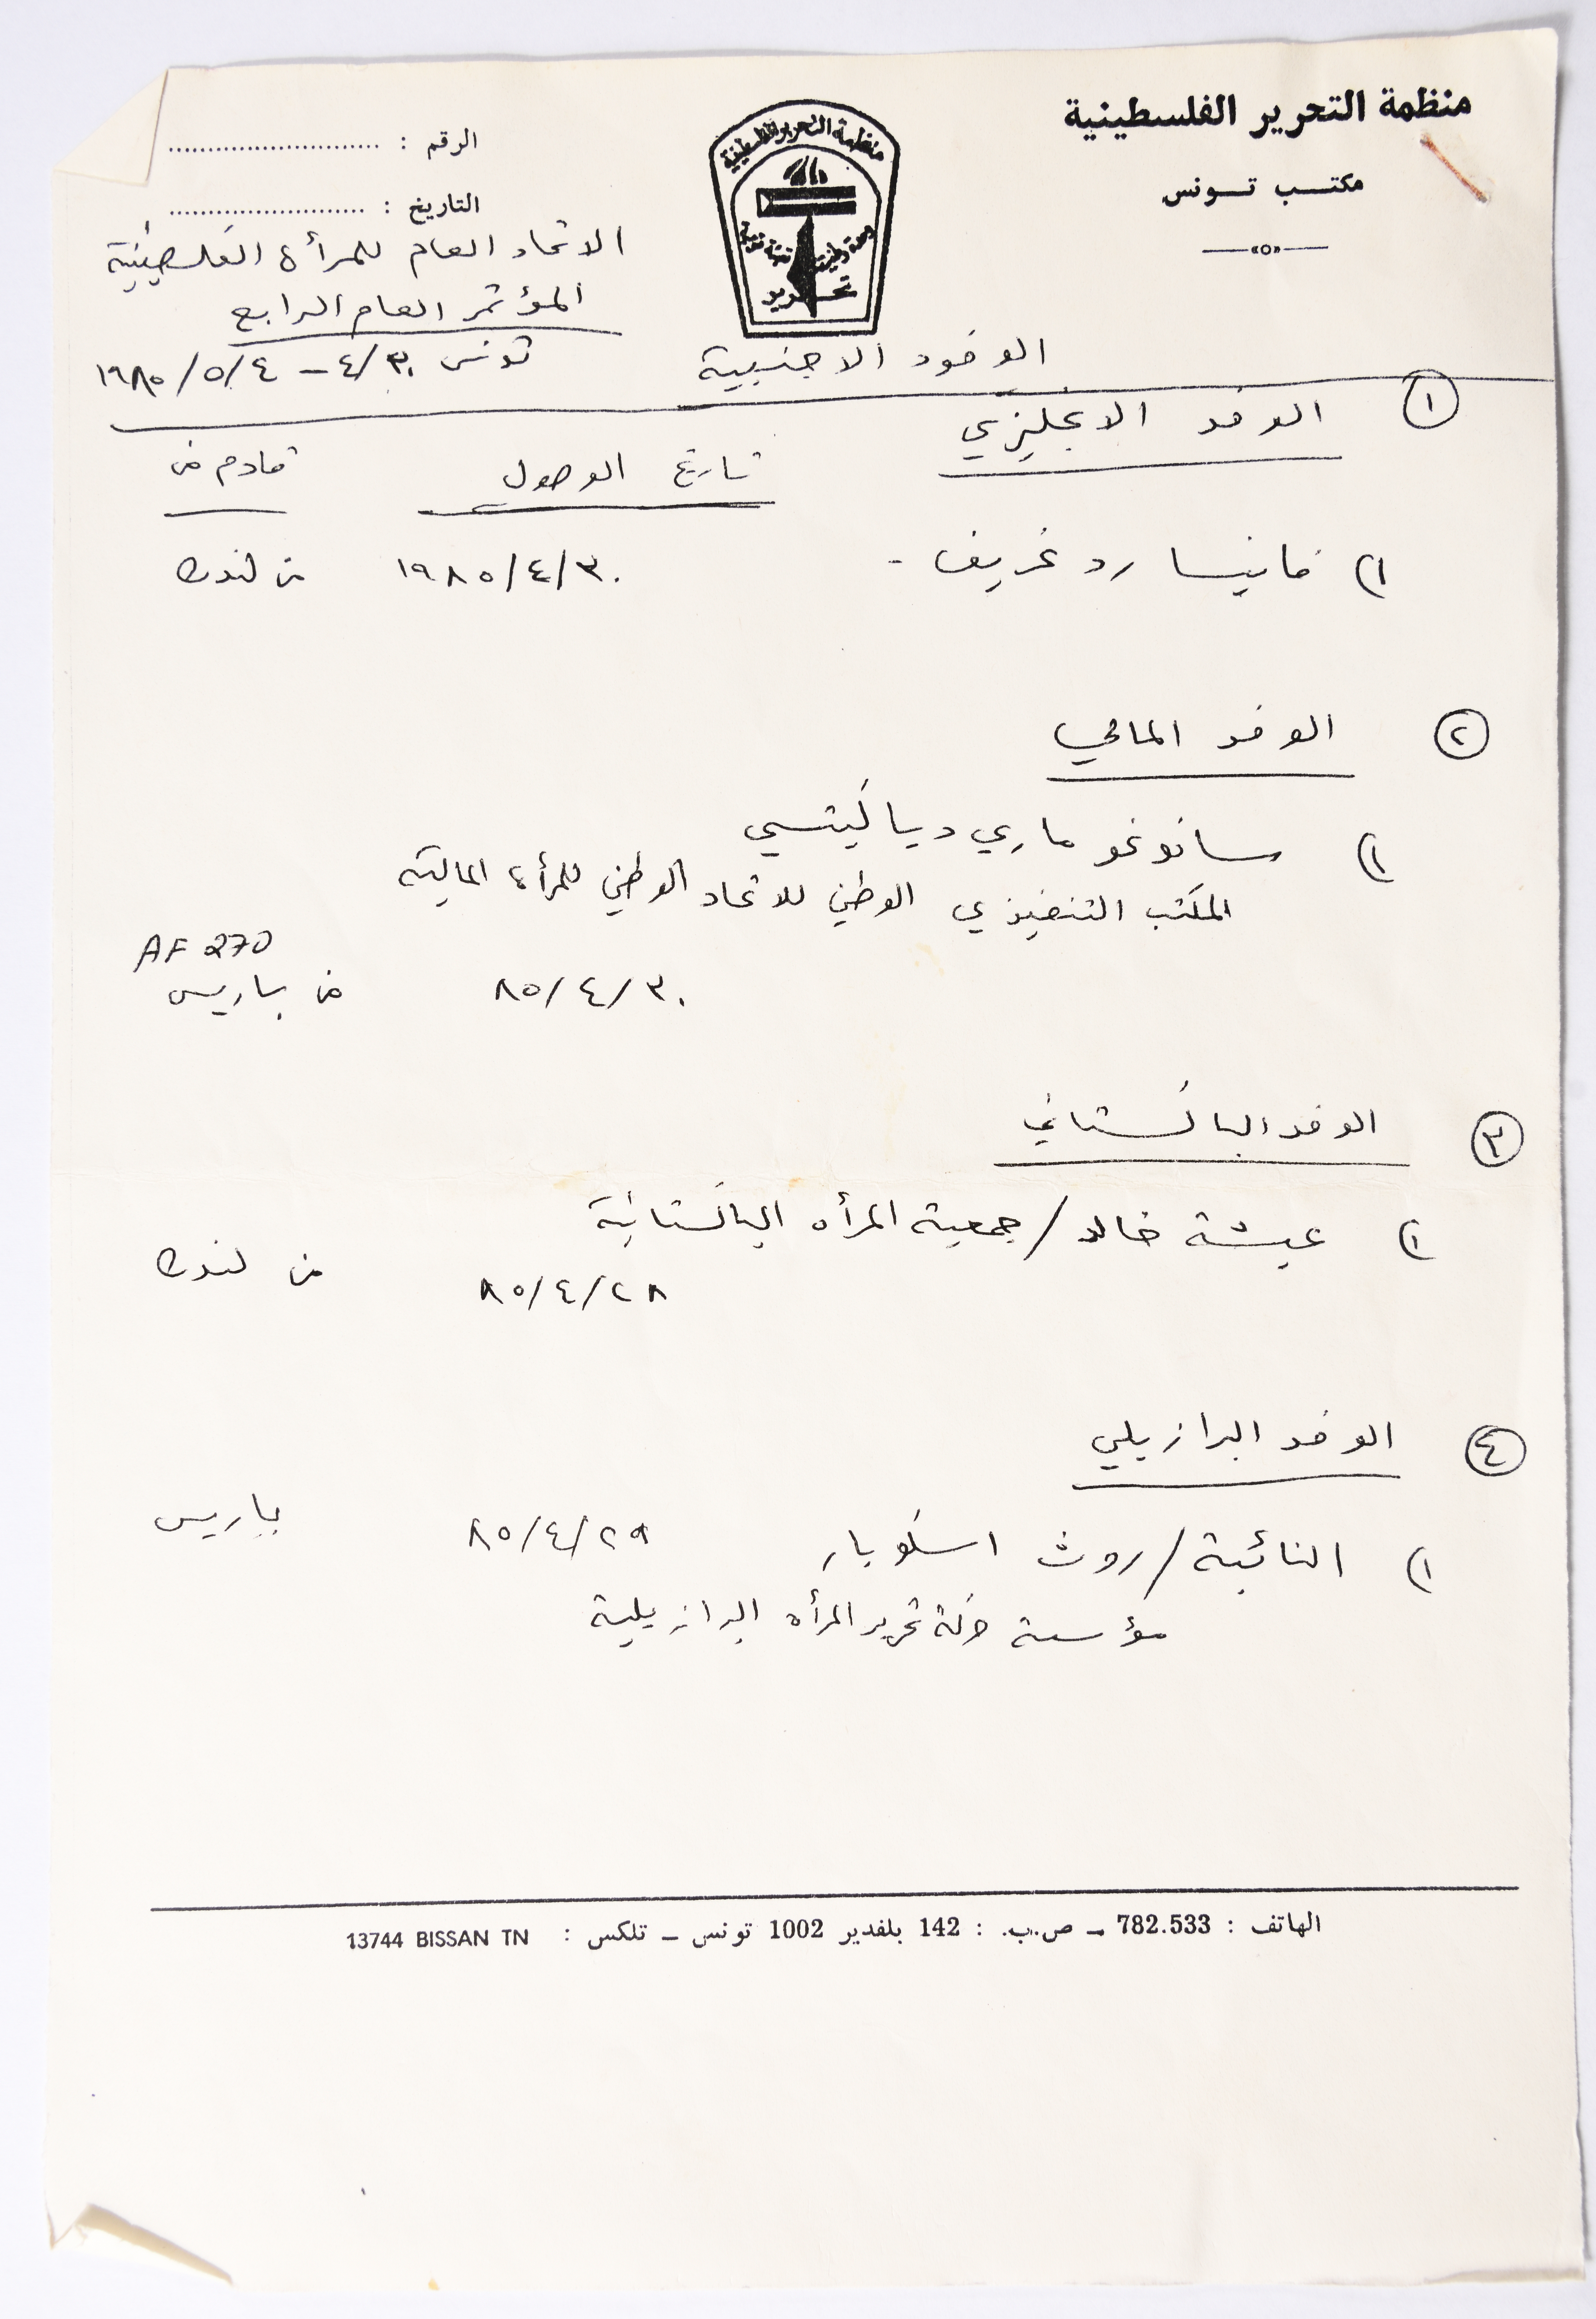 منظمة التحرير الفلسطينية
مكتب تونس
منظمة التحرير الفلسطينية
وحدة وطنية تعبئة قومية
تحرير
الرقم :
التاريخ :
الاتحاد العام للمرأة الفلسطينية
المؤتمر العام الرابع
تونس ٣٠/٤ – ٤/٥/١٩٨٥
الوفود الاجنبية
١ الوفد الانجليزي
تاريخ الوصول قادم من
١) فانيسا رد غريف - ٣٠/٤/١٩٨٥ من لندن
٢ الوفد المالي
١) سانوغو ماري دياكيتسي
المكتب التنفيذي الوطني للاتحاد الوطني للمرأة المالية
AF 270
٣٠/٤/٨٥ من باريس
٣ الوفد الباكستاني
١) عيشة خالد / جمعية المرأه الباكستانية
٢٨/٤/٨٥ من لندن
٤ الوفد البرازيلي
١) النائبة / روث اسكوبار ٢٩/٤/٨٥ باريس
مؤسسة حركة تحرير المرأه البرازيلية
الهاتف : 782.533 ــ ص.ب. : 142 بلفدير 1002 تونس ــ تلكس : 13744 BISSAN TN